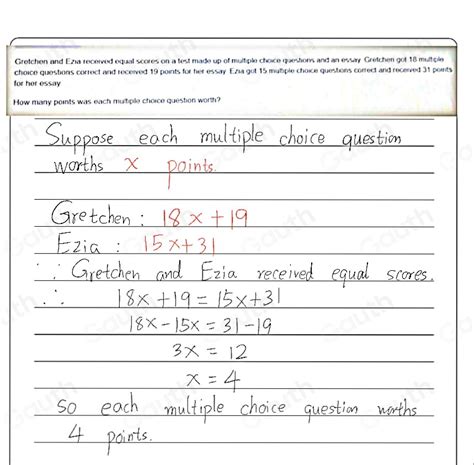 Gretchen and Ezia received equal scores on a test made up of multiple choice questions and an essay. Gretchen got 18 multiple
choice questions correct and received 19 points for her essay. Ezia got 15 multiple choice questions correct and received 31 points
for her essay
How many points was each multiple choice question worth?
Suppose each multiple choice question
worths x points.
Gretchen : 18x+19
Ezia : 15x+31
∵ Gretchen and Ezia received equal scores.
∴ 18x+19=15x+31
18x-15x=31-19
3x = 12
x = 4
so each multiple choice question worths
4 points.